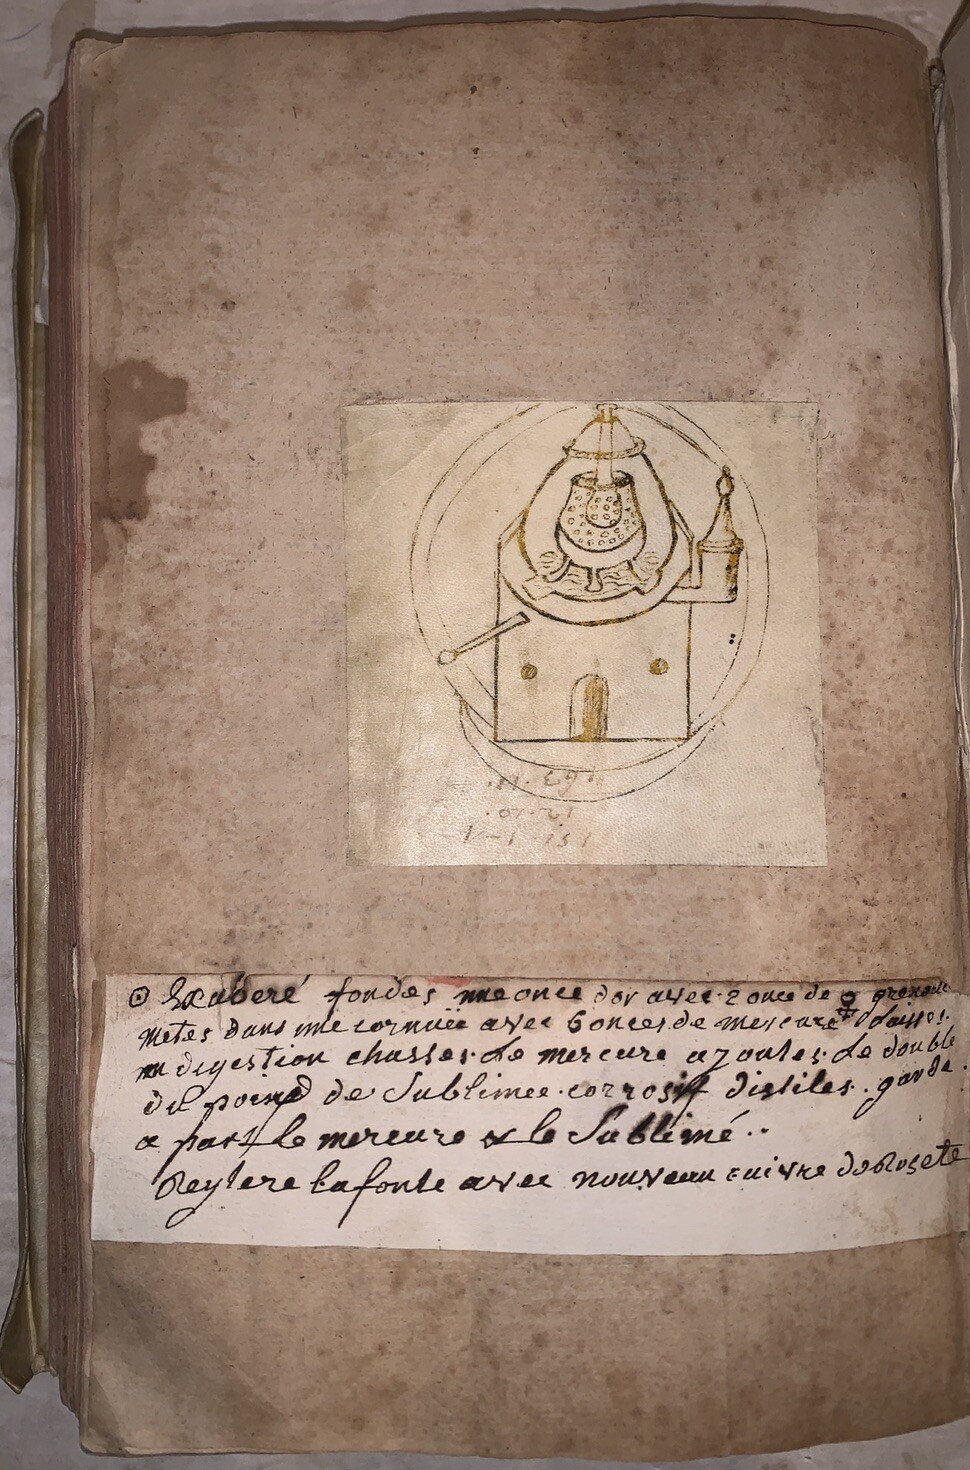 .11. .E91
.01.21
1-1 .151
☉ Exuberé fondes une once dor avec 2 once de ♀ grenaille
Metes dans une cornuë avec 6 onces de mercure ☿ Laisses.
en digestion chasses. Le mercure ajoutes. Le double
du poind de Sublimee corrosiff distiles. garde.
a part le mercure & le Sublimé..
Reytere lafonte avec nouveau cuivre de Rosete